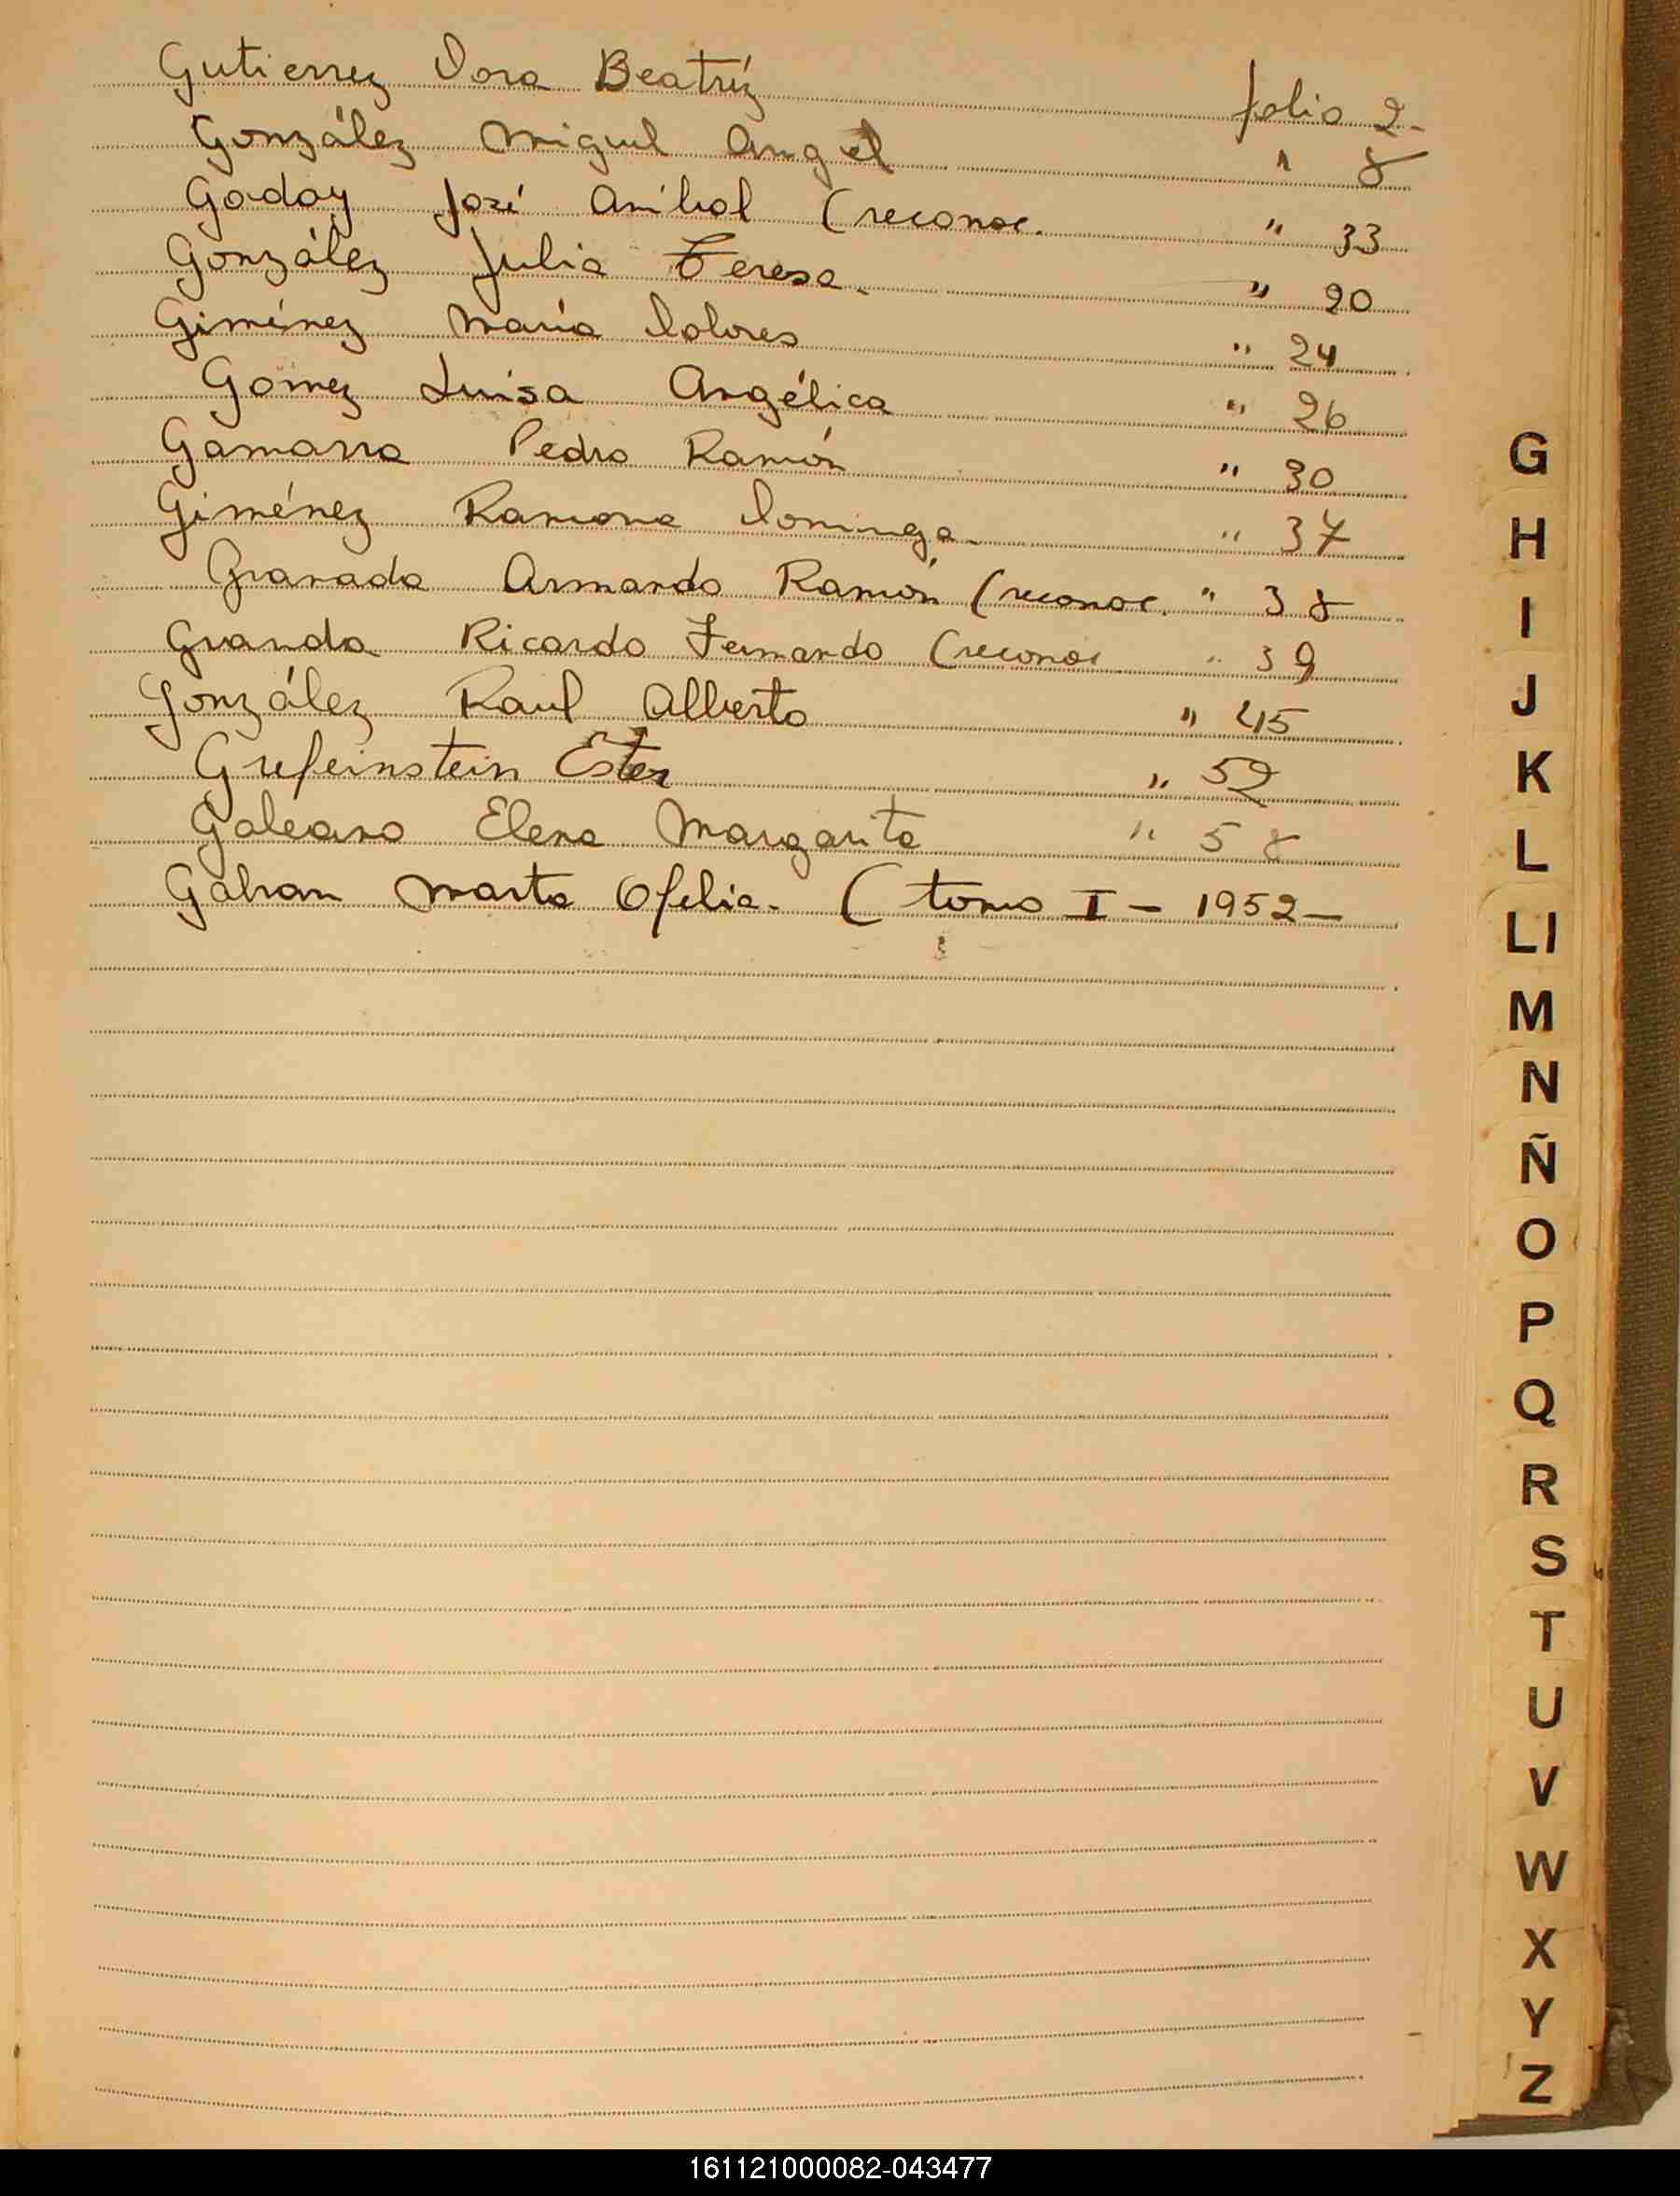 Gutierrez Dora Beatríz folio 2-
González Miguel Angel " 8
Godoy José Aníbal (reconoc. " 33
González Julia Teresa. " 20
Giménez María Dolores " 24
Gómez Luisa Angélica " 26
Gamarra Pedro Ramón " 30
Giménez Ramona Dominga. " 37
Granada Armando Ramón (reconoc. " 38
Granda Ricardo Fernando (reconoc " 39
González Raul Alberto " 45
Grefeinstein Ester " 52
Galeano Elena Margarita " 58
Galvan Marta Ofelia. (tomo I - 1952-
G
H
I
J
K
L
Ll
M
N
Ñ
O
P
Q
R
S
T
U
V
W
X
Y
Z
161121000082-043477